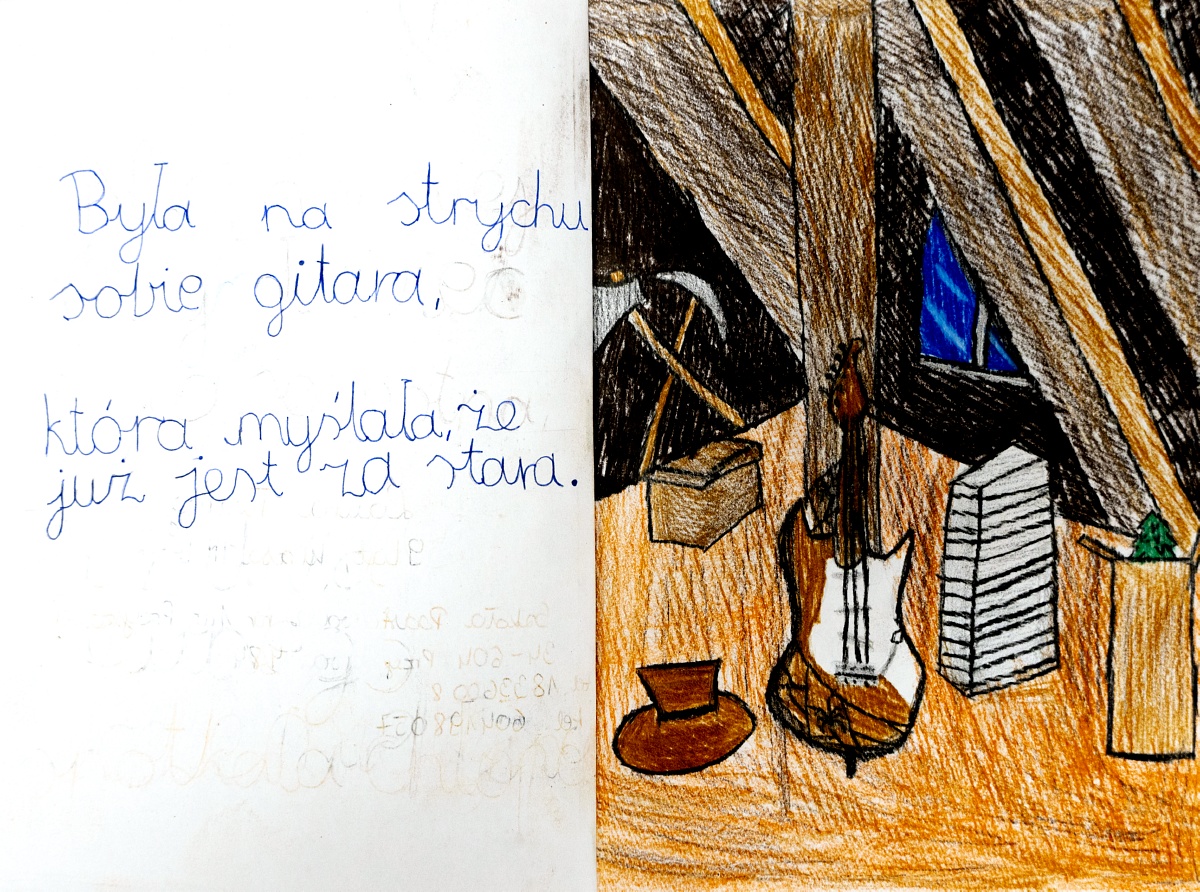 Była na strychu
sobie gitara,
która myślała, że
już jest za stara.